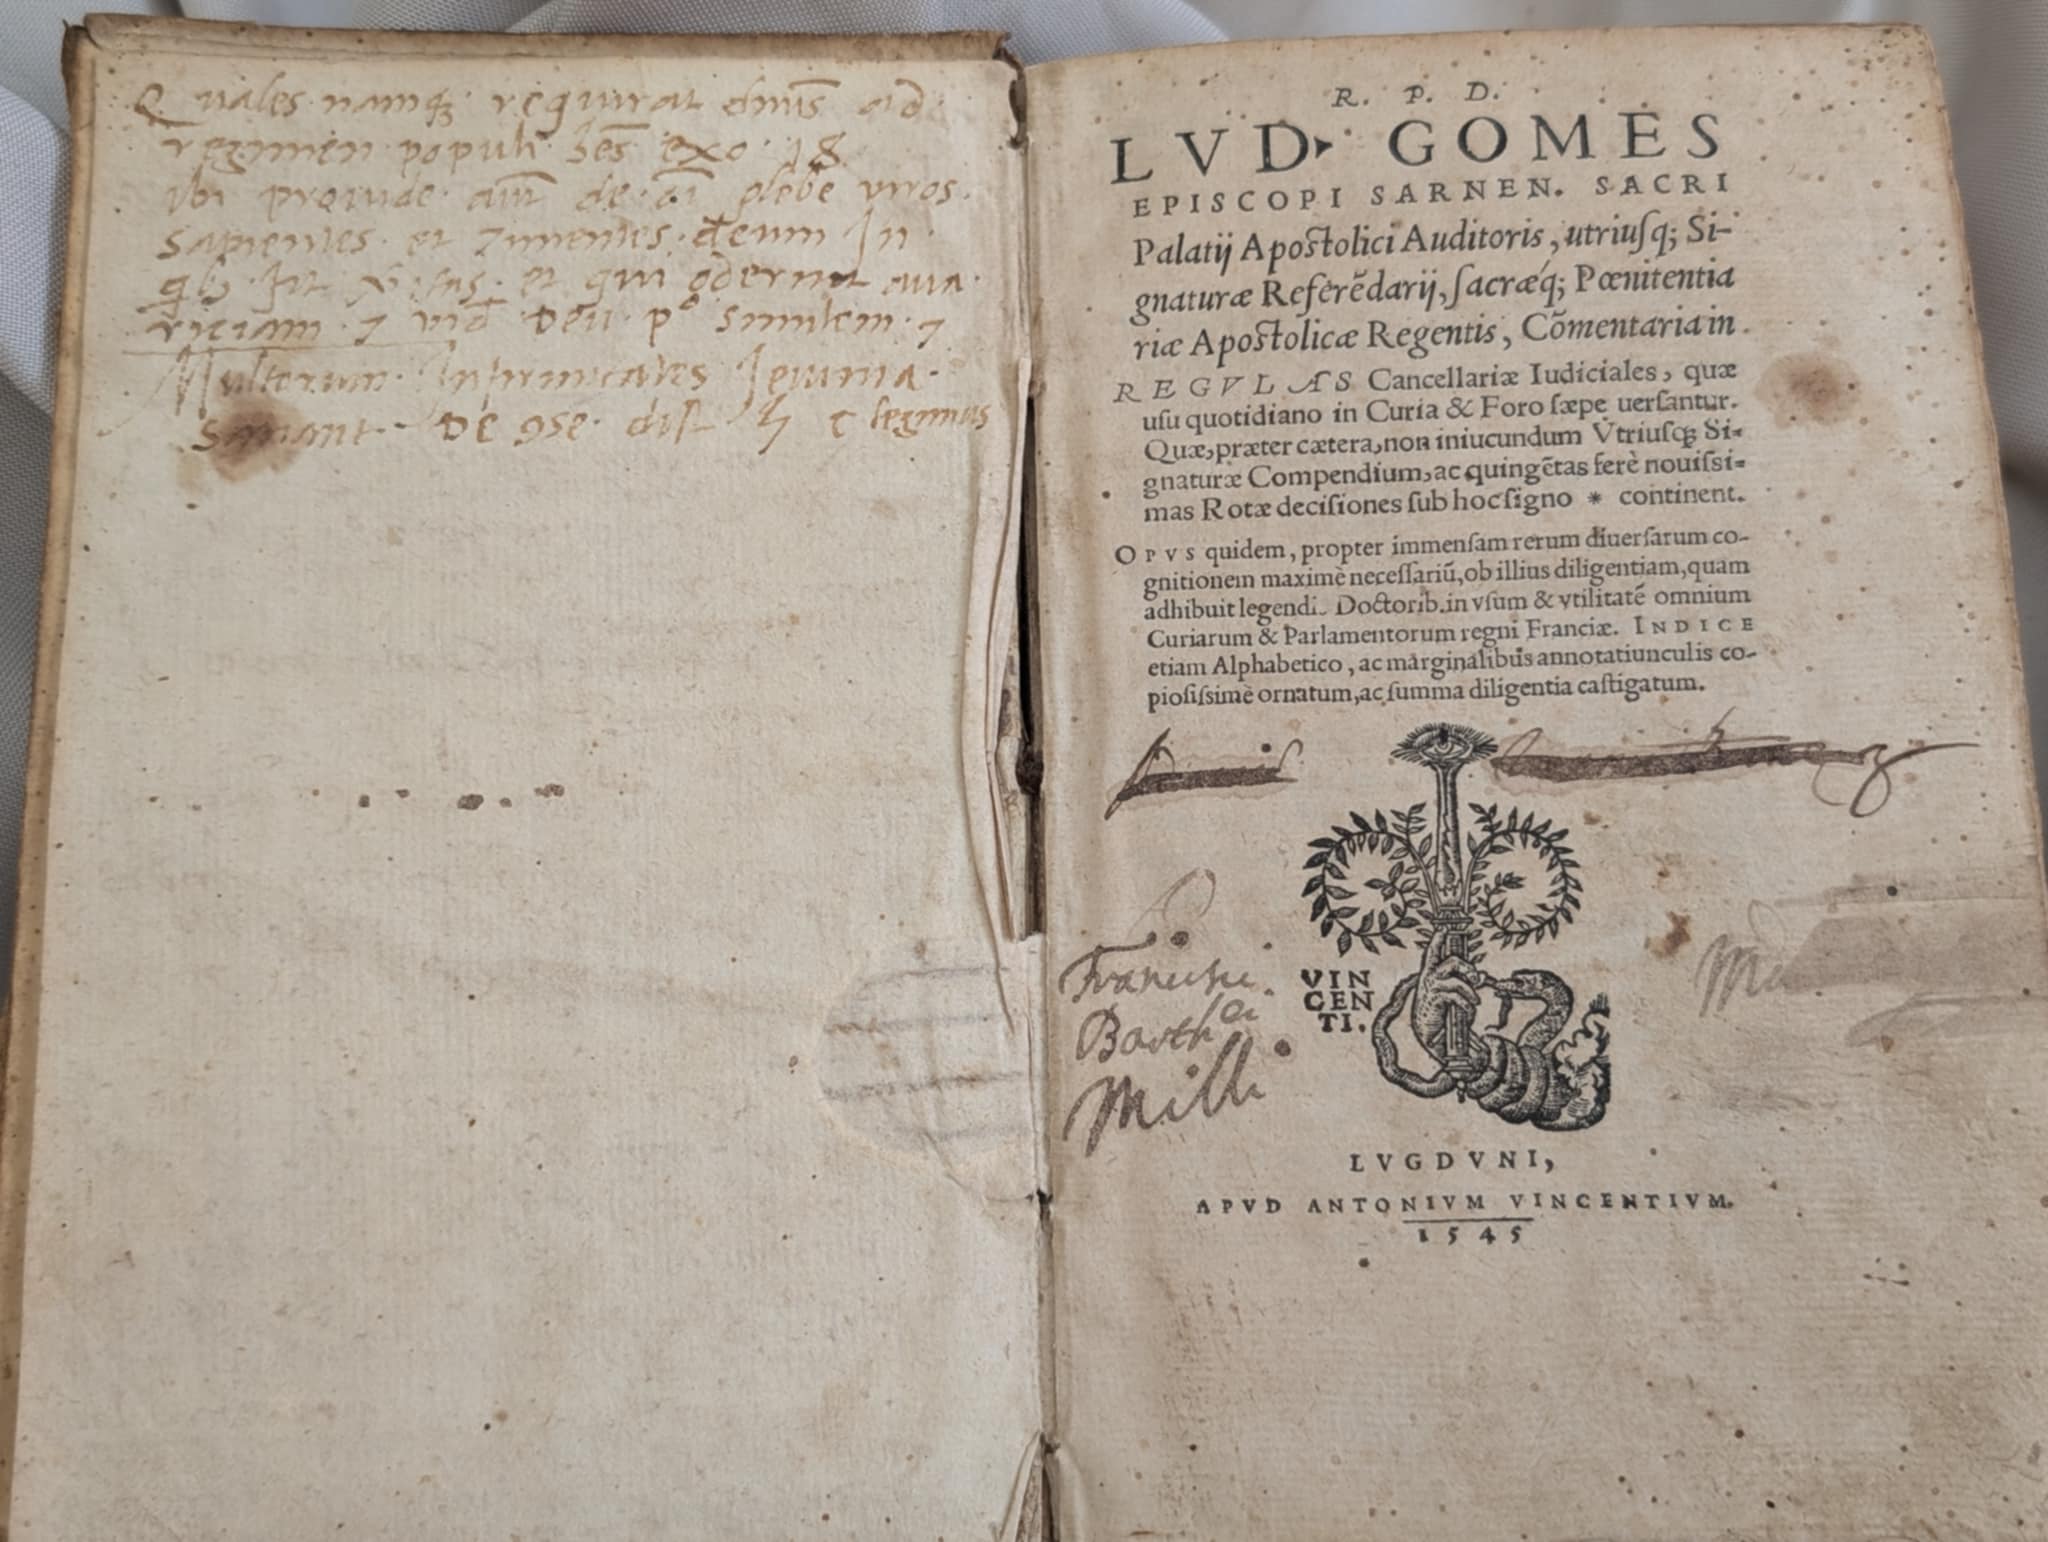 Quales namq; requirat dm̄s ad
regimen populi hēs exo 18
ibi prouide aūt de oī plebe viros
sapientes et timentes deum In
qb; sit veritas et qui oderint aua
riciam 7 vid deū po similem 7
Multorum Infirmitates Ieiunia
sanant De 9se dist 5 c legimus
R. P. D.
LVD GOMES
EPISCOPI SARNEN. SACRI
Palatij Apostolici Auditoris, utriusq; Si-
gnaturæ Referẽdarij, sacræq́; Pœnitentia
riæ Apostolicæ Regentis, Cõmentaria in
REGVLAS Cancellariæ Iudiciales, quæ
usu quotidiano in Curia & Foro sæpe uersantur.
Quæ, præter cætera, non iniucundum Vtriusq; Si-
gnaturæ Compendium, ac quingẽtas ferè nouissi-
mas Rotæ decisiones sub hoc signo * continent.
OPVS quidem, propter immensam rerum diuersarum co-
gnitionem maximè necessariũ, ob illius diligentiam, quam
adhibuit legendi. Doctorib. in vsum & vtilitatẽ omnium
Curiarum & Parlamentorum regni Franciæ. INDICE
etiam Alphabetico, ac marginalibus annotatiunculis co-
piosissimè ornatum, ac summa diligentia castigatum.
Francisci
Barthei
Milli
VIN
CEN
TI.
LVGDVNI,
APVD ANTONIVM VINCENTIVM.
1545